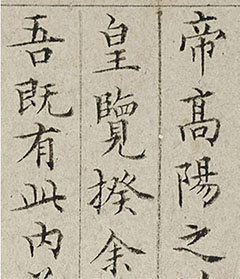 帝高陽之
皇覽揆余
吾既有此内